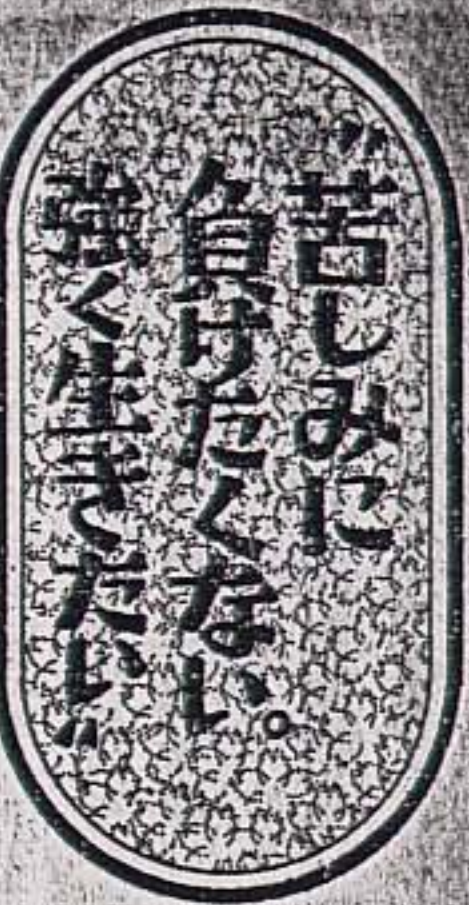 “苦しみに
負けたくない。
強く生きたい”